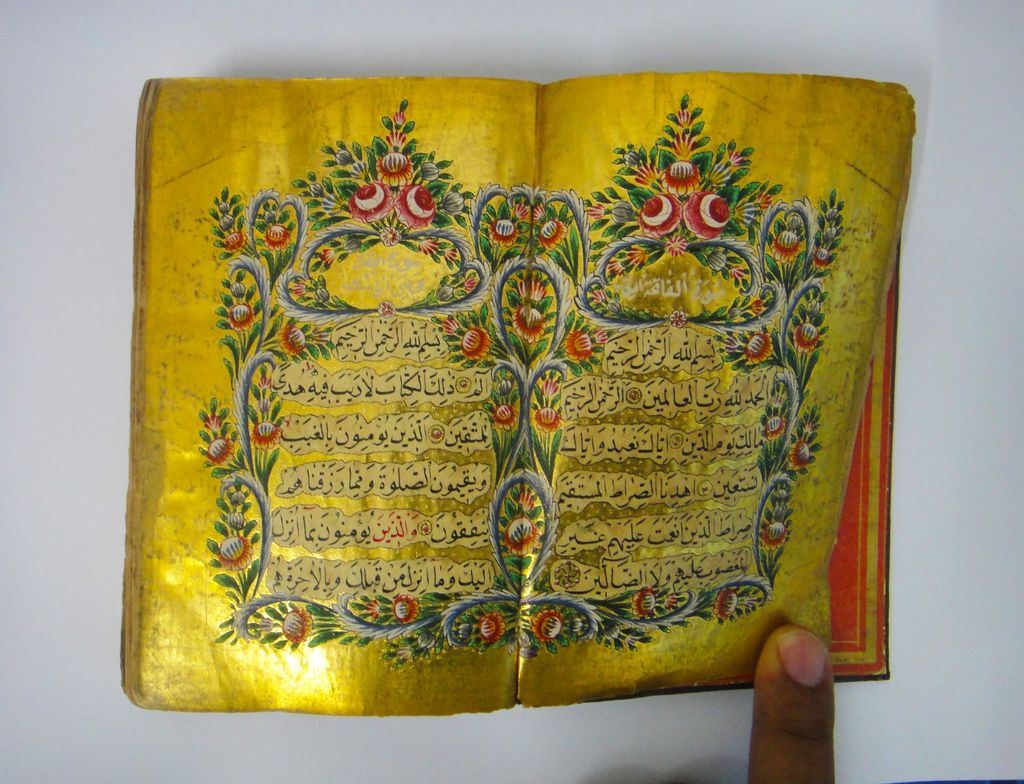 سورة الفاتحة
بسم الله الرحمن الرحيم
الحمد لله رب العالمين الرحمن الرحيم
مالك يوم الدين اياك نعبد واياك
نستعين اهدنا الصراط المستقيم
صراط الذين انعمت عليهم غير
المغضوب عليهم ولا الضالين
بسم الله الرحمن الرحيم
الم ذلك الكتاب لا ريب فيه هدى
للمتقين الذين يؤمنون بالغيب
ويقيمون الصلوة ومما رزقناهم
ينفقون والذين يؤمنون بما انزل
اليك وما انزل من قبلك وبالاخرة هم